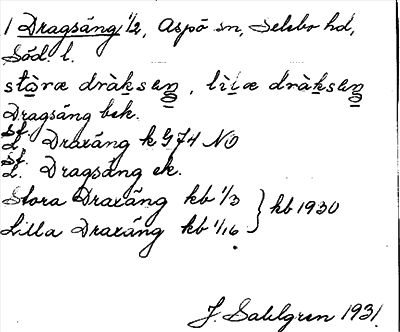 1 Dragsäng 1/2, Aspö sn, Selebo hd,
Söd. l.
stòræ dràksæŋ, lìlæ dràksæŋ
Dragsäng bek.
St. L. Draxäng k G74 NO
St. L. Dragsäng ek.
Stora Draxäng kb 1/3 } kb 1930
Lilla Draxäng kb 1/16
J. Sahlgren 1931.